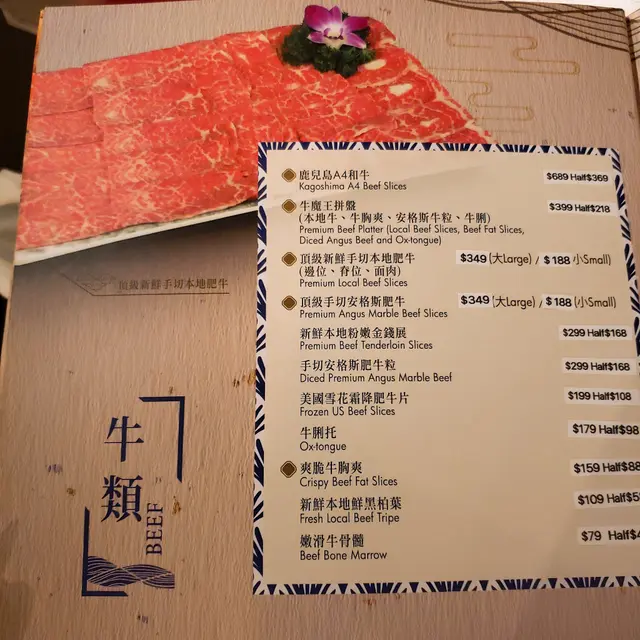 鹿兒島A4和牛 $689 Half$369
Kagoshima A4 Beef Slices
牛魔王拼盤 $399 Half$218
(本地牛、牛胸爽、安格斯牛粒、牛脷)
Premium Beef Platter (Local Beef Slices, Beef Fat Slices,
Diced Angus Beef and Ox-tongue)
頂級新鮮手切本地肥牛 $349 (大Large) / $188 小Small)
(邊位、脊位、面肉)
Premium Local Beef Slices
頂級手切安格斯肥牛 $349 (大Large) / $188 (小Small)
Premium Angus Marble Beef Slices
新鮮本地粉嫩金錢展 $299 Half$168
Premium Beef Tenderloin Slices
手切安格斯肥牛粒 $299 Half$168
Diced Premium Angus Marble Beef
美國雪花霜降肥牛片 $199 Half$108
Frozen US Beef Slices
牛脷托 $179 Half$98
Ox-tongue
爽脆牛胸爽 $159 Half$88
Crispy Beef Fat Slices
新鮮本地鮮黑柏葉 $109 Half$5
Fresh Local Beef Tripe
嫩滑牛骨髓 $79 Half$4
Beef Bone Marrow
頂級新鮮手切本地肥牛
牛類
BEEF